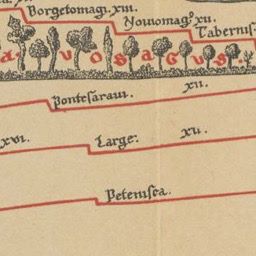 Borgetomagi. xiii.
Noviomag⁹. xii.
Tabernis
a. v o s a g u s.
Pontesaravi.
xii.
xvi.
Large.
xii.
Petenisca.